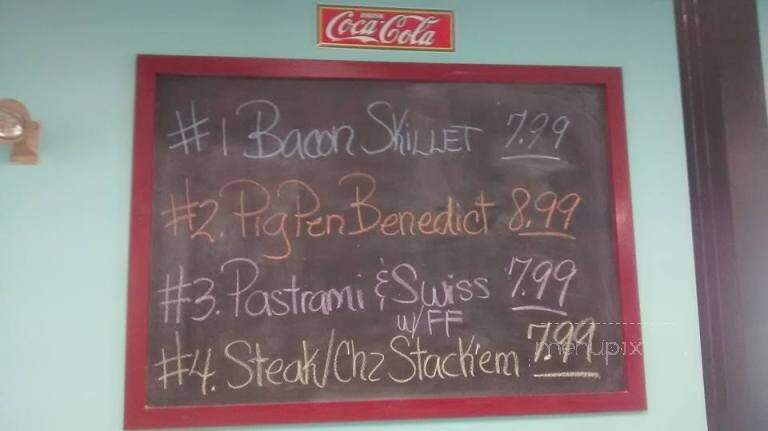 DRINK
Coca-Cola
#1 Bacon SKiLLET 7.99
#2. Pig Pen Benedict 8.99
#3. Pastrami & Swiss 7.99
w/FF
#4. Steak/Chz Stack'em 7.99
menupix